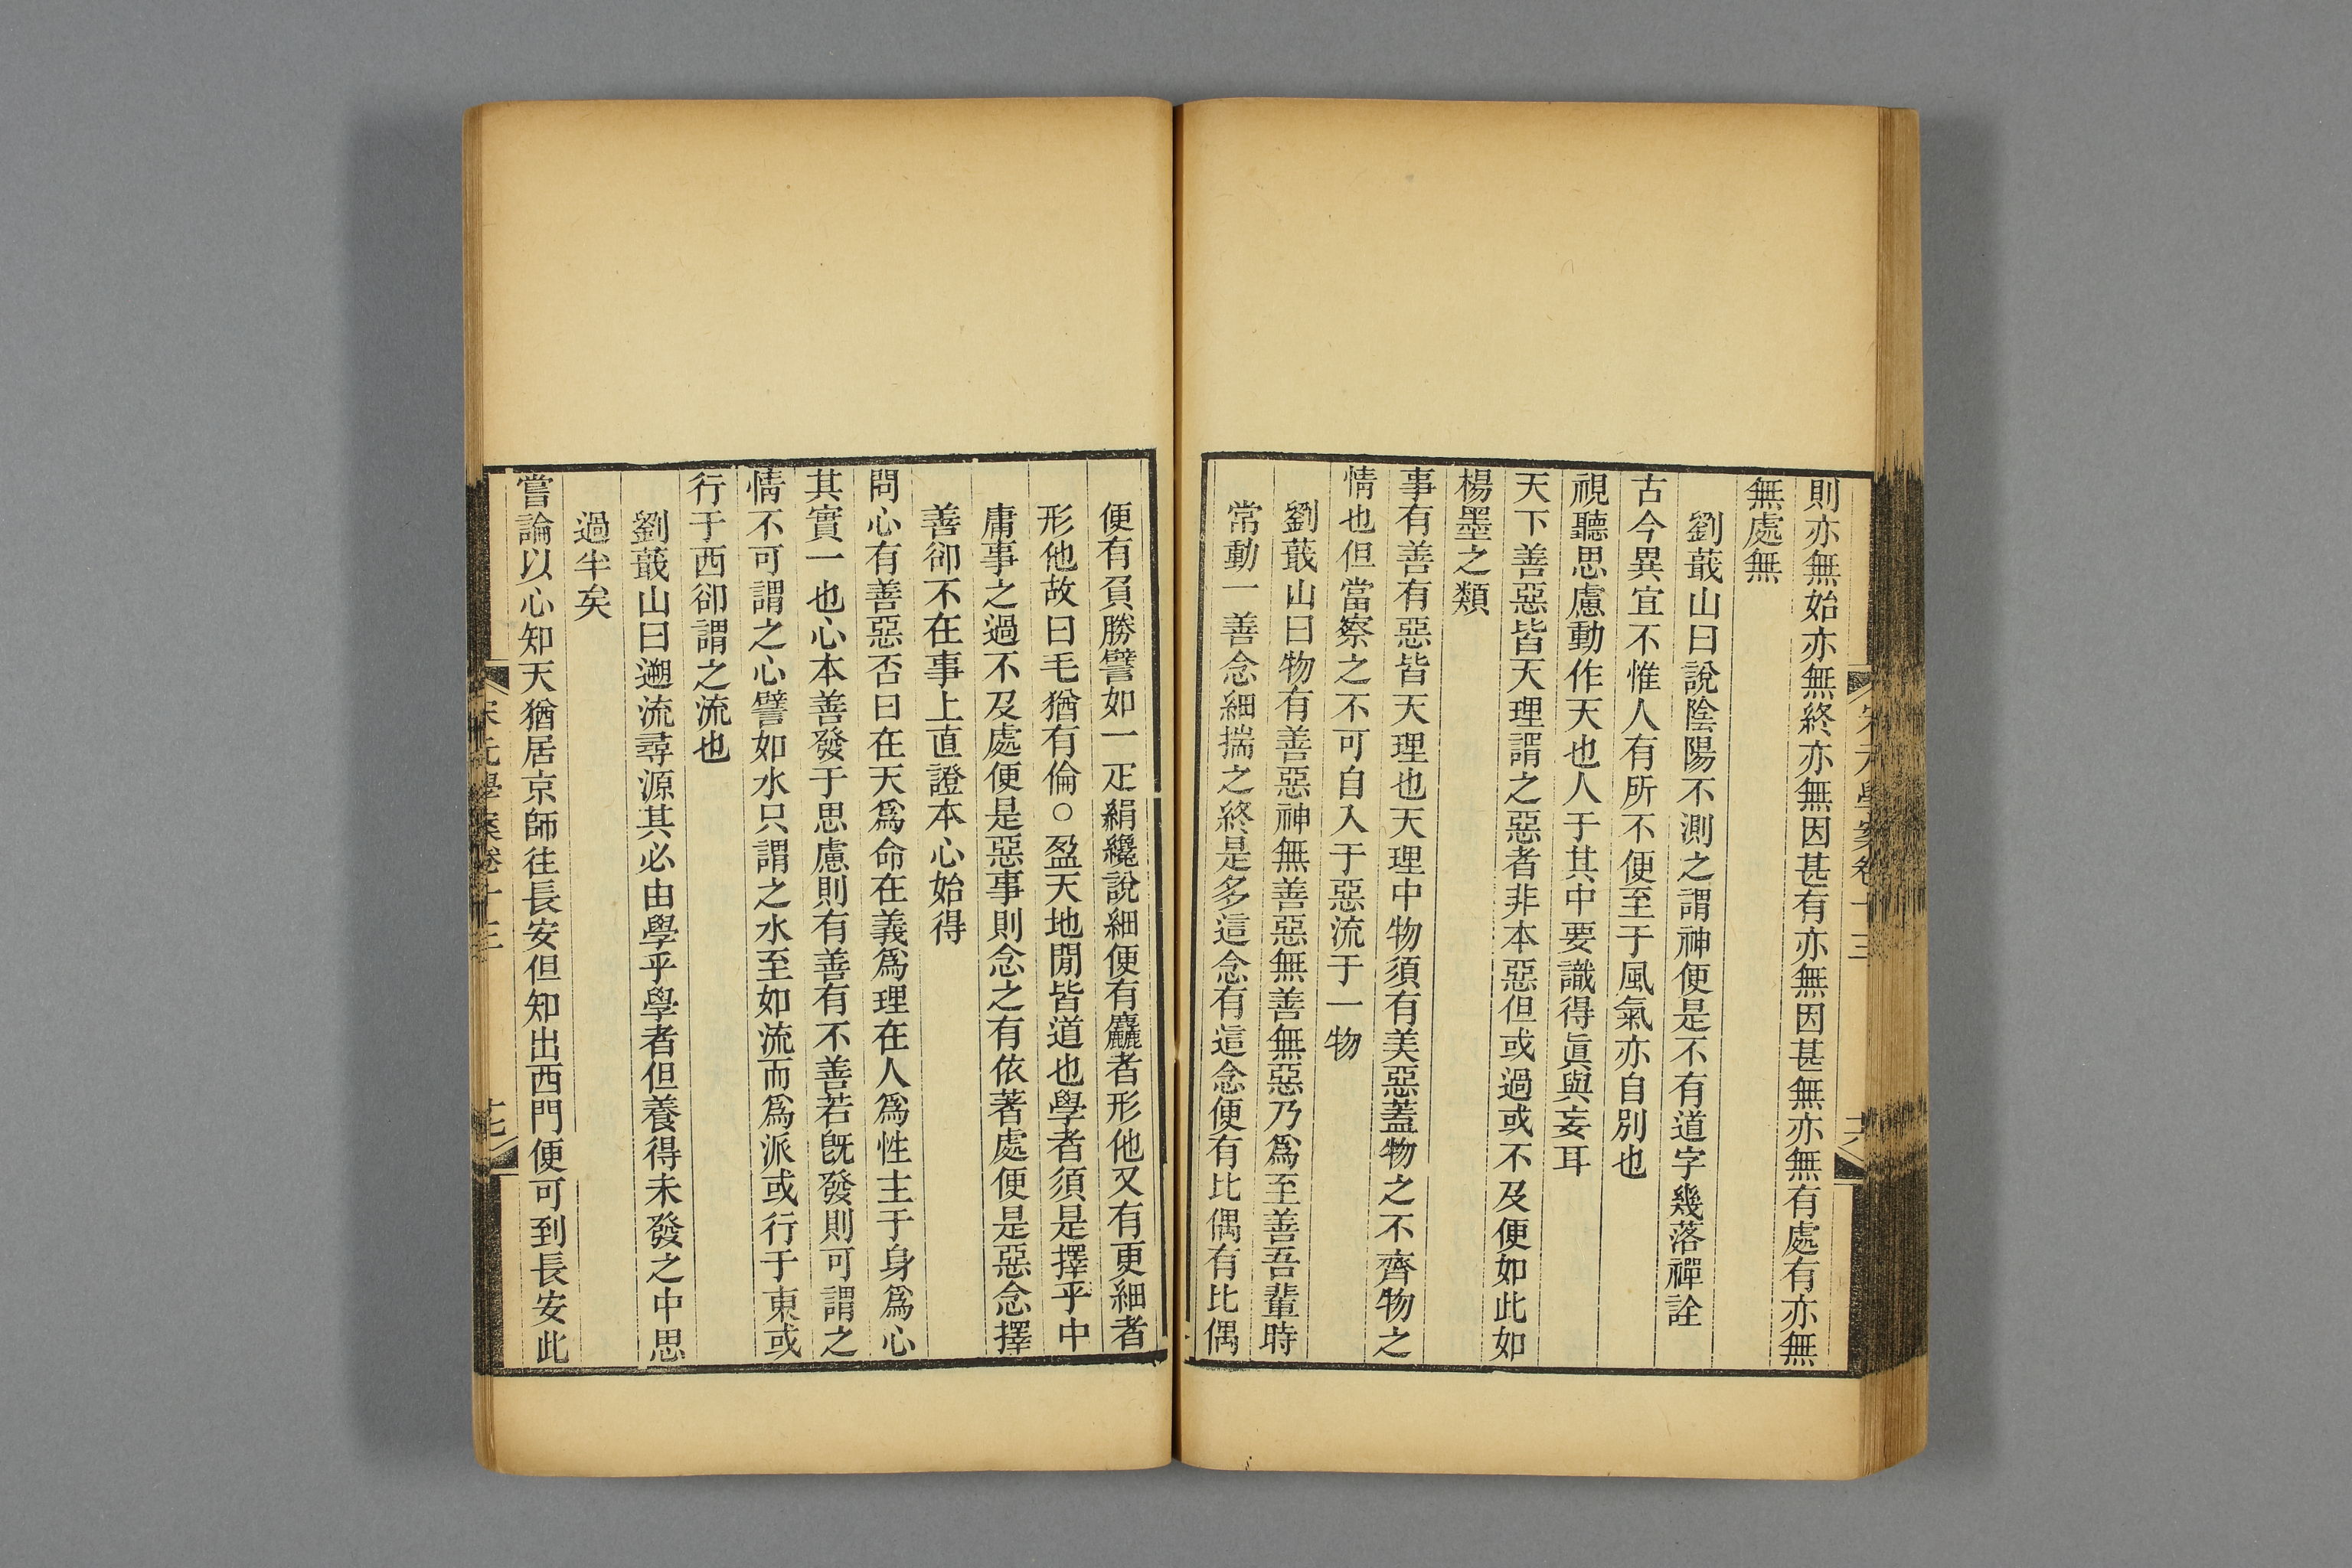 則亦無始亦無終亦無因甚有亦無因甚無亦無有處有亦無
無處無
劉蕺山曰說陰陽不測之謂神便是不有道字幾落禪詮
古今異宜不惟人有所不便至于風氣亦自別也
視聽思慮動作天也人于其中要識得眞與妄耳
天下善惡皆天理謂之惡者非本惡但或過或不及便如此如
楊墨之類
事有善有惡皆天理也天理中物須有美惡蓋物之不齊物之
情也但當察之不可自入于惡流于一物
劉蕺山曰物有善惡神無善惡無善無惡乃爲至善吾輩時
常動一善念細揣之終是多這念有這念便有比偶有比偶
便有負勝譬如一疋絹纔說細便有麤者形他又有更細者
形他故曰毛猶有倫○盈天地閒皆道也學者須是擇乎中
庸事之過不及處便是惡事則念之有依著處便是惡念擇
善卻不在事上直證本心始得
問心有善惡否曰在天爲命在義爲理在人爲性主于身爲心
其實一也心本善發于思慮則有善有不善若旣發則可謂之
情不可謂之心譬如水只謂之水至如流而爲派或行于東或
行于西卻謂之流也
劉蕺山曰遡流尋源其必由學乎學者但養得未發之中思
過半矣
嘗論以心知天猶居京師往長安但知出西門便可到長安此
宋元學案卷十三